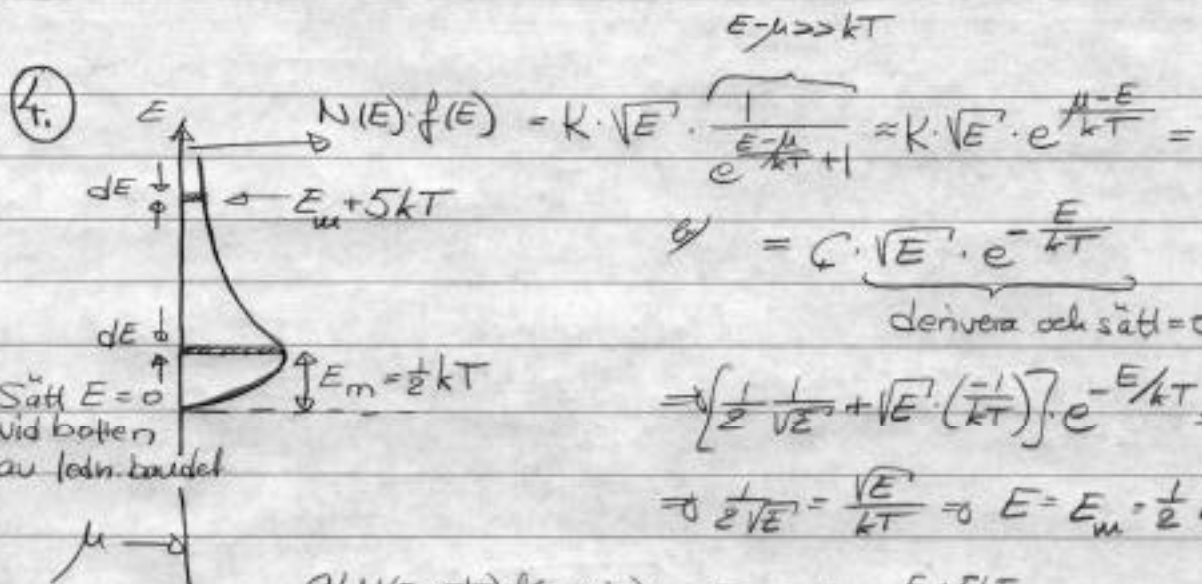 E-μ>>kT
4.
E
N(E)·f(E) = K·√E · 1/(e^((E-μ)/kT)+1) ≈ K·√E · e^((μ-E)/kT) =
dE
E_m+5kT
= C·√E · e^(-E/kT)
derivera och sätt = 0
dE
E_m = ½kT
Sätt E=0
vid botten
av ledn.bandet
⇒ [½ 1/√E + √E·(-1/kT)]·e^(-E/kT)
⇒ 1/(2√E) = √E/kT ⇒ E = E_m = ½
μ